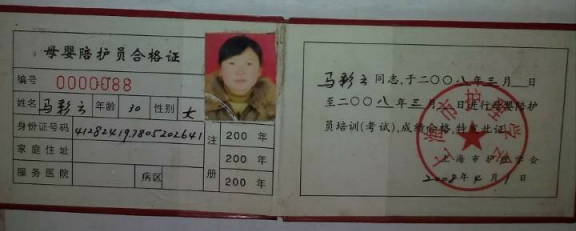 母婴陪护员合格证
编号 0000088
姓名 马彩云 年龄 30 性别 女
身份证号码
家庭住址
服务医院 病区
注册
200 年
200 年
200 年
马彩云同志,于二〇〇八年三月 日
至二〇〇八年三月 日进行母婴陪护
员培训(考试),成绩合格,特发此证。
上海市护理学会
2008年4月1日
上海市护理学会